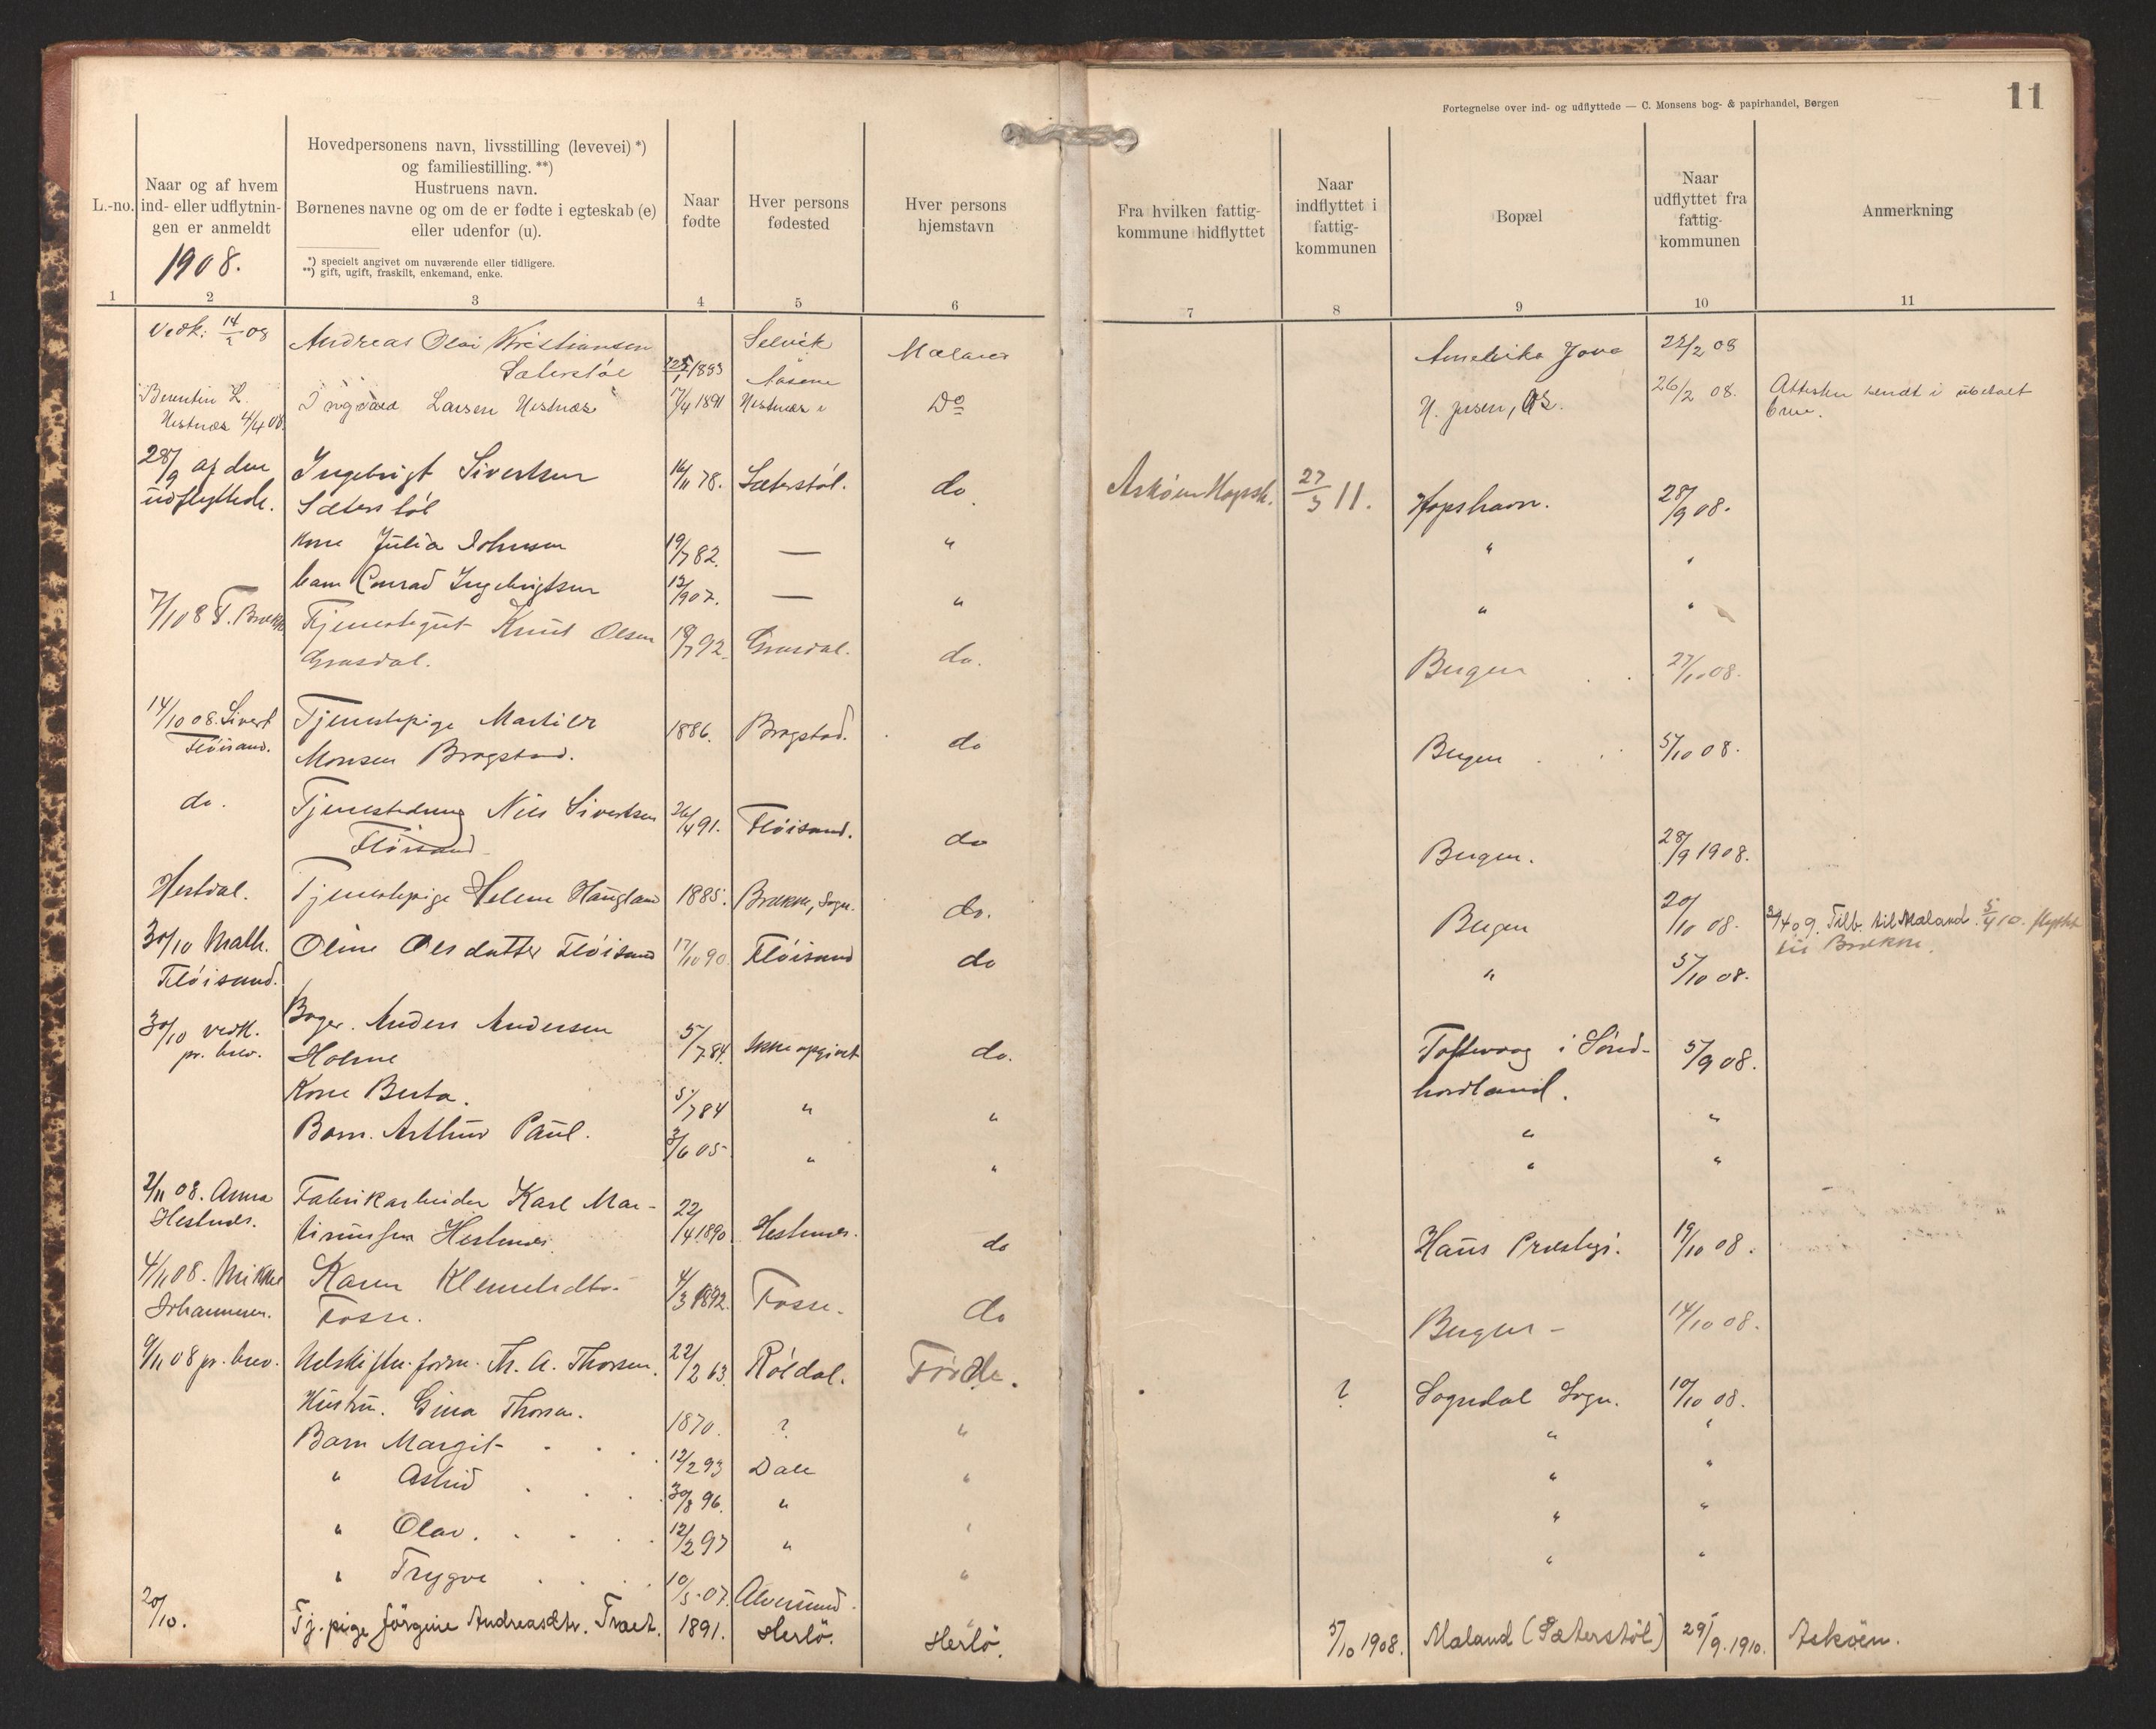 11
Fortegnelse over ind- og udflyttede — C. Monsens bog- & papirhandel, Bergen
L.-no.
Naar og af hvem
ind- eller udflytnin-
gen er anmeldt
1908.
Hovedpersonens navn, livsstilling (levevei) *)
og familiestilling. **)
Hustruens navn.
Børnenes navne og om de er fødte i egteskab (e)
eller udenfor (u).
*) specielt angivet om nuværende eller tidligere.
**) gift, ugift, fraskilt, enkemand, enke.
Naar
fødte
Hver persons
fødested
Hver persons
hjemstavn
Fra hvilken fattig-
kommune hidflyttet
Naar
indflyttet i
fattig-
kommunen
Bopæl
Naar
udflyttet fra
fattig-
kommunen
Anmerkning
1 2 3 4 5 6 7 8 9 10 11
Vedk: 14/2 08 Andreas Olai Kristiansen Selvik Amerika 22/2 08
Sæterstøl 1883
Berentin L. Larsen Hestnæs 17/4 1891 Hestnæs Do 26/2 08. Attesten sendt i
Hestnæs 4/4 08. brev.
28/9 af den Ingebrigt Sivertsen 16/11 78. Sæterstøl. do. 27/3 11. Hopshavn. 28/9 08.
udflyttede. Sæterstøl
Kone Julia Johnsen 19/7 82. — " " "
barn Conrad Ingebrigtsen 907. — " " "
7/10 8 T. Tjenestegut Knut Olsen 18/7 92. do. Bergen 27/10 08.
14/10 08. Sivert Tjenestepige 1886. Brogstad. do Bergen 5/10 08.
Fløisand. Monsen Brogstad.
do. Tjenestedreng Nils Sivertsen 26/4 91. Fløisand. do Bergen. 28/9 1908.
Fløisand
Hestdal. Tjenestepige Helene Haugland 1885. Brække, Sogn. do. Bergen 20/10 08. 09. Tilb. til Mæland. 5/4 10. flyttet
til Brække.
30/10 Math. Oline Olsdatter Fløisand 17/10 90. Fløisand do " 5/10 08.
Fløisand.
30/10 vedk. Bager. Anders Andersen 5/7 84. Ikke opgivet do. i Sønd- 5/9 08.
pr. brev. Holme hordland.
Kone Berta. 5/7 84 " " " "
Barn. Arthur Paul. 3/6 05 " " " "
2/11 08. Anna Fabrikarbeider Karl Mar- 22/4 1890. Hestnæs. do Haus Prestegj. 19/10 08.
Hestnæs. tinussen Hestnæs.
4/11 08. Mikkel Karen Klemetsdtr. 4/3 1892. Fosse. do Bergen - 14/10 08.
Johannesen. Fosse.
9/11 08 pr. brev. Th. A. Thorsen. 22/2 63. Røldal. Førde. ? Sogndal Sogn. 10/10 08.
Hustru. Gina Thorsen. 1870. ? " " "
Barn Margit 12/2 93 Dale " " "
" Astrid 30/8 96. " " " "
" Olav. 12/2 97 " " " "
" Trygve 10/5 07. Alversund. "
20/10. Tj. pige Jörgine Andreasdtr. Træt. 1891. Herlö. Herlö. 5/10 1908. Mæland (Sæterstöl) 29/9. 1910. Asköen.